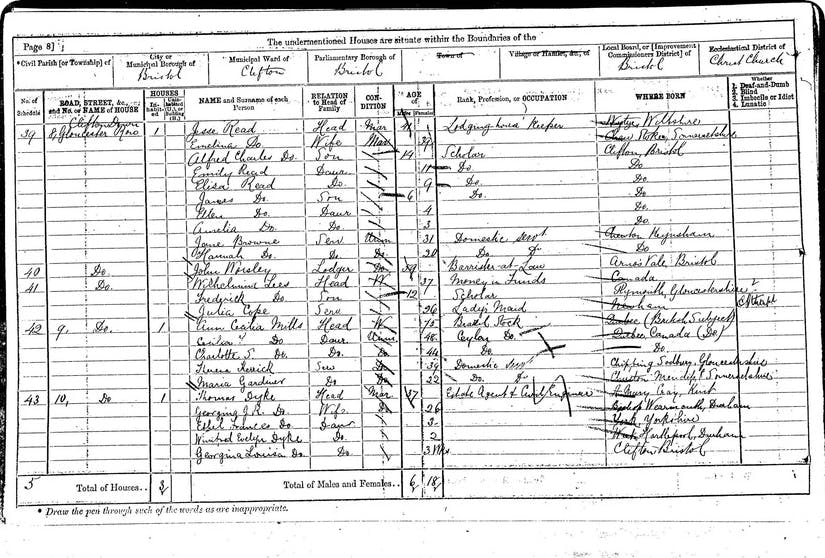 The undermentioned Houses are situate within the Boundaries of the
Page 8]
*Civil Parish [or Township] of
City or Municipal Borough of
Bristol
Municipal Ward of
Clifton
Parliamentary Borough of
Bristol
Town of
Village or Hamlet, &c., of
Local Board, or [Improvement Commissioners District] of
Bristol
Ecclesiastical District of
Christ Church
No. of Schedule
ROAD, STREET, &c., and No. or NAME of HOUSE
HOUSES
Inhabited
NAME and Surname of each Person
RELATION to Head of Family
CONDITION
AGE of
Males
Females
Rank, Profession, or OCCUPATION
WHERE BORN
Whether
Deaf-and-Dumb
Blind
Imbecile or Idiot
Lunatic
Clifton Down
39 8, Gloucester Row 1 Jesse Read Head Mar Lodging house Keeper Wiltshire
Emelina Do. Wife Mar 39 Somersetshire
Alfred Charles Do. Son 14 Scholar Clifton, Bristol
Emily Read Daur 11 Do. Do.
Elisa Read Do. 9 Do. Do.
James Do. Son 6 Do. Do.
Ellen Do. Daur 4 Do.
Amelia Do. Do. 3 Do.
Jane Browne Serv 31 Domestic Servt Keynsham
Hannah Do. Do. 20 Do. Do
40 Do. John Worsley Lodger Barrister-at-Law Arno's Vale Bristol
41 Do. Wilhelmina Lees Head W 37 Money in Funds Canada
Frederick Do. Son 12 Scholar Plymouth, Gloucestershire?
Julia Cope Serv 26 Lady's Maid
42 9, Do. 1 Ann Mills Head W 75 Bank Stock Quebec (British Subject)
Do Daur 48 Do Quebec, Canada (Do)
Charlotte S. Do. Do. 44 Do. Do.
Serv 39 Domestic Servt Chipping Sodbury, Gloucestershire
Maria Gardner Do 22 Do. Do Mendip, Somersetshire
43 10, Do 1 Thomas Dyke Head Mar 37 Estate Agent & Civil Engineer Kent
Georgina J.R. Do. Wife Do 26 Bishop Wearmouth, Durham
Ethel Frances Do. Daur 3 York, Yorkshire
Winifred Evelyn Dyke Do. 2 West Hartlepool, Durham
Georgina Louisa Do. Do. 3 Wks Clifton Bristol
5 Total of Houses... 3 Total of Males and Females... 6 18
* Draw the pen through such of the words as are inappropriate.